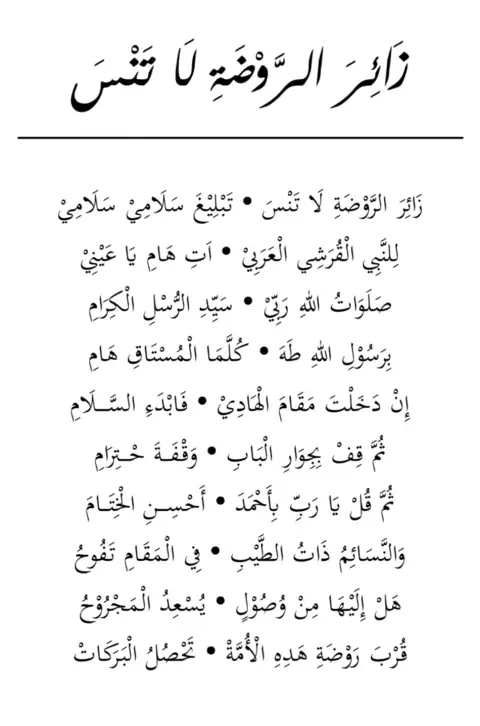 زَائِرَ الرَّوْضَةِ لَا تَنْسَ
زَائِرَ الرَّوْضَةِ لَا تَنْسَ • تَبْلِيْغَ سَلَامِيْ سَلَامِيْ
لِلنَّبِي الْقُرَشِي الْعَرَبِيْ • اَتِ هَامِ يَا عَيْنِيْ
صَلَوَاتُ اللهِ رَبِّيْ • سَيِّدِ الرُّسْلِ الْكِرَامِ
بِرَسُوْلِ اللهِ طَهَ • كُلَّمَا الْمُسْتَاقِ هَامِ
إِنْ دَخَلْتَ مَقَامَ الْهَادِيْ • فَابْدَءِ السَّـلَامِ
ثُمَّ قِفْ بِجِوَارِ الْبَابِ • وَقْفَـةَ حْـتِرَامِ
ثُمَّ قُلْ يَا رَبِّ بِأَحْمَدَ • أَحْسِـنِ الْخِتَـامَ
وَالنَّسَائِمُ ذَاتُ الطَّيْبِ • فِي الْمَقَامِ تَفُوحُ
هَلْ إِلَيْهَا مِنْ وُصُوْلٍ • يُسْعِدُ الْمَجْرُوْحُ
قُرْبَ رَوْضَةِ هَدِهِ الْأُمَّةْ • تَحْصُلُ الْبَرَكَاتْ